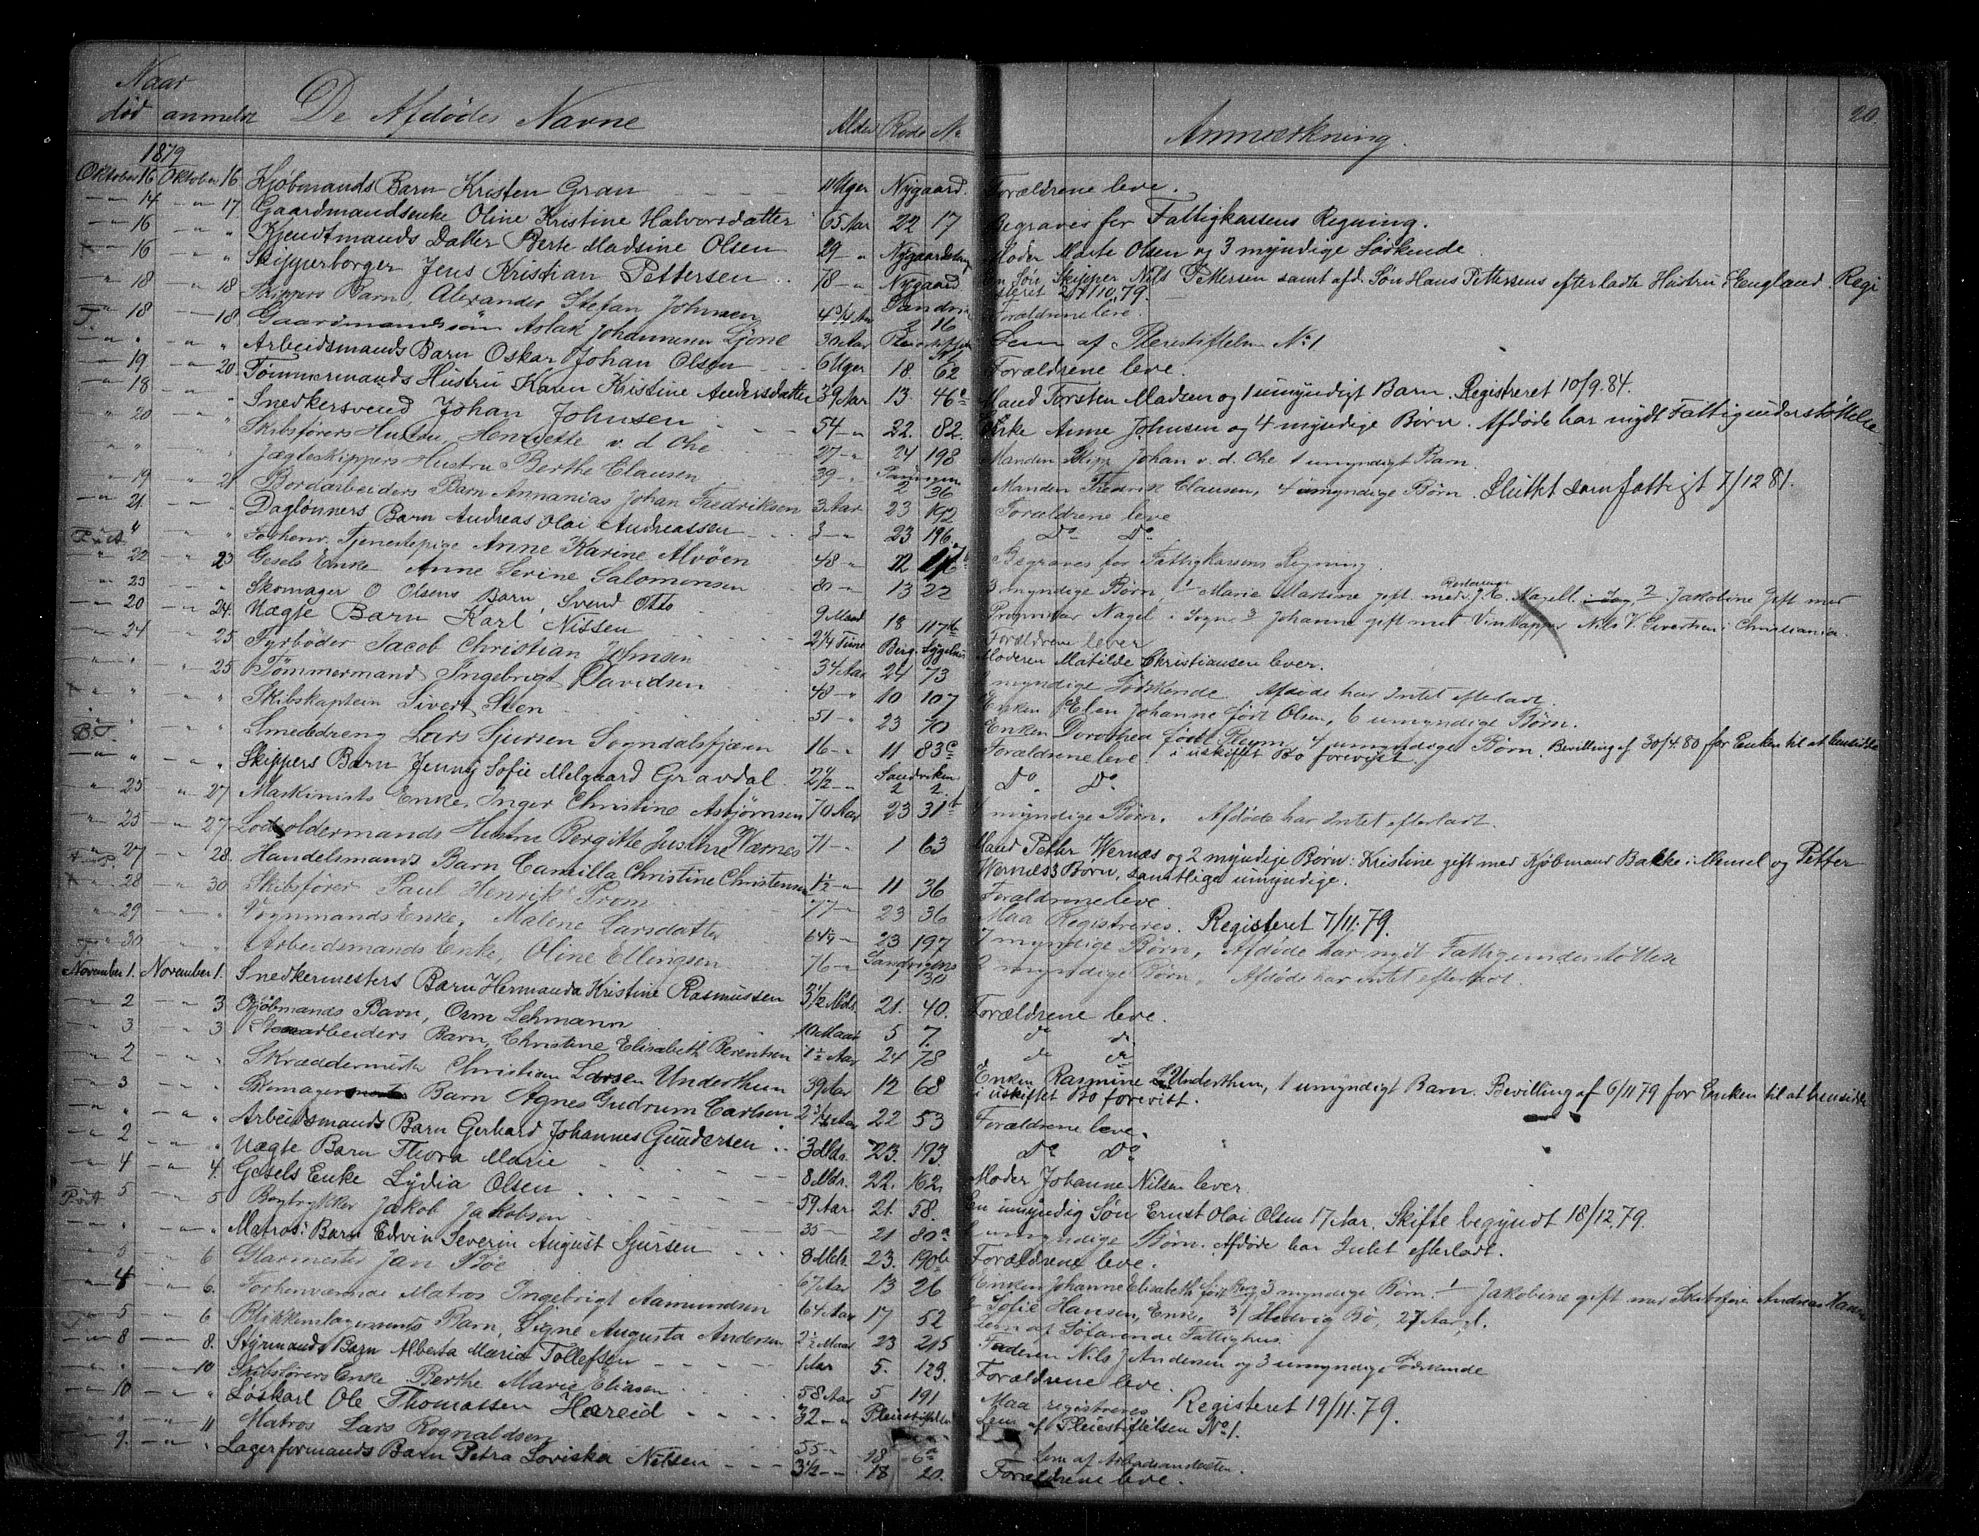 20.
Naar
død anmeldt De Afdødes Navne Alder Rode No Anmærkning.
1879
Oktober 16 Oktober 16 Kjøbmands Barn Kristen Gran 11 Uger Nygaard. Forældrene leve.
" 14 " 17 Gaardmandsenke Oline Kristine Halvorsdatter 65 Aar 22 17 Begraves for Fattigkassens Regning.
" 16 " " Kjendtmands Datter Berte Madsine Olsen 29 " Moder Marte Olsen og 3 myndige Søskende
" 16 " " Skipperborger Jens Kristian Pettersen 78 " Nygaard En Søn Skipper Nils Pettersen samt afd. Søn Hans Pettersens efterladte Hustru Regi
" 18 " 18 Skippers Barn, Alexander Stefan Johnsen Forældrene leve.
T. " 18 " 18 Gaardmandssøn Aslak Johannesen Ljone 30 Aar Lem af Pleiestiftelsen No 1
" " " " Arbeidsmands Barn Oskar Johan Olsen 6 Uger 18 62 Forældrene leve.
" 19 " 20 Tømmermands Hustru Karen Kristine Andersdatter 39 Aar 13. 46c Mand Torsten Madsen og 1 umyndigt Barn. Registreret 10/9.84.
" 18 " " Snedkersvend Johan Johnsen 54 " 22. 82. Enke Anne Johnsen og 4 myndige Børn. Afdøde har nydt Fattigunderstøttelse
" 20 " " Skibsførers Hustru, Henriette v. d. Ohe 27 " 24 198 Manden Skip. Johan v. d. Ohe 1 umyndigt Barn.
" " " " Jægteskippers Hustru Berthe Clausen 39 " 2 36 Manden Fredrik Clausen, 4 umyndige Børn. Sluttet som fattigt 7/12 81.
" 19 " 21 Bordarbeiders Barn Annanias Johan Fredriksen 3 Aar 23 192 Forældrene leve
" 21 " " Daglønners Barn Andreas Olai Andreassen 3 " 23 196 Do Do
" " " " Forhenv. Tjenestepige Anne Karine Alvøen 48 " Begraves for Fattigkassens Regning.
" 22 " 23 Gesels Enke Anne Serine Salomonsen 80 " 13 22 3 myndige Børn, 1 Marie Martine gift med J. C. Nagell i Sogn, 2 Jakobine gift med
" 23 " " Skomager O Olsens Barn, Svend Otto 9 Maand 18 117b Nagel i Sogn 3 Johanne gift med Vintapper Nils V. Sivertsen i Christiania.
Forældrene lever
" 20 " 24. Uægte Barn Karl Nissen 2 1/4 Time Moderen Matilde Christiansen lever.
" 24 " 25 Fyrbøder Jacob Christian Johnsen 34 Aar 24 73 myndige Søskende Afdøde har Intet efterladt.
" " " 25 Tømmermand Ingebrigt Davidsen 48 " 10 107 Enken Elen Johanne født Olsen, 6 umyndige Børn.
" " " " Skibskaptein Sivert Steen 51 " 23 70 Enken Dorothea født 4 umyndige Børn. Bevilling af 30/4.80 for Enken til at hensidde
i uskiftet Bo forevist.
" " " " Smededreng Lars Sjursen Sogndalsfjæren 16 " 11 83c Forældrene leve
" " " " Skippers Barn Jenny Sofie Melgaard Gravdal 2 1/2 " Sandviken 2 2 Do Do
" 25 " 27 Maskinists Enke, Inger Christine Asbjørnsen 70 Aar 23 31 myndige Børn, Afdøde har Intet efterladt.
" 25 " 27 Lodsoldermands Hustru Bergitte Justine Wærnes 71 " 1 63 Mand Petter Wernæs og 2 myndige Børn: Kristine gift med Kjøbmand Bakke i og Petter
Wernæs Børn, samtlige umyndige.
" 27 " 28. Handelsmands Barn Camilla Christine Christensen 1 1/2 " 11 36 Forældrene leve.
" 28 " 30 Skibsfører Paul Henrik Prom 77 " 23 36 Maa Registreres. Registreret 7/11.79.
" 29 " " Vognmands Enke, Malene Larsdatter 64 " 23 197 7 myndige Børn, Afdøde har nydt Fattigunderstøttelse
" 30 " " Arbeidsmands Enke, Oline Ellingsen 76 " Sandvigens 1 30 2 myndige Børn, Afdøde har intet efterladt.
November 1. November 1. Snedkermesters Barn Hermanda Kristine Rasmussen 3 1/2 Mdr. 21. 40. Forældrene leve.
" 2 " 3 Kjøbmands Barn, Orm Lehmann 10 Maan 5 7. do do
" 3 " 3 Barn, Christine Elisabeth Berentsen 1 1/2 Aar 24 78 do do
" 2 " " Skræddermester Christian Larsen Underthun 39 Aar 12 68 Enken Rasmine Underthun, 1 umyndigt Barn. Bevilling af 6/11 79 for Enken til at hensidde
i uskiftet Bo forevist.
" 3 " " Skomager Barn Agnes Gudrum Carlsen 2 3/4 Aar 22 53 Forældrene leve.
" " " " Arbeidsmands Barn Gerhard Johannes Gundersen 3 Mdr. 23. 193. Do Do
" 2 " " Uægte Barn Thora Marie 8 Mdr. 22. 162. Moder Johanne Nilsen lever.
" 4 " 4. Gesels Enke Lydia Olsen 59 Aar 21. 58. En umyndig Søn Ernst Olai Olsen 17 Aar. Skifte begyndt 18/12.79.
" 5 " 5 Bogtrykker Jakob Jakobsen 35 " 21 80a umyndige Børn. Afdøde har Intet efterladt.
" " " " Matros: Barn Edvin Severin August Sjursen 8 Mdr. 23. 190b Forældrene leve.
" 5 " 6 Glarmester Jan Bøe 67 Aar 13 26 Enken Johanne Elisabeth født 3 myndige Børn: 1 Jakobine gift med Skibsfører Andreas Hansen
2 Sofie Hansen, Enke, 3/ Hedvig Bø, 27 Aar gl.
" 4 " 6. Forhenværende Matros Ingebrigt Aamundsen 64 Aar 17 52 Lem af Søfarende Fattighus.
" 5 " 6 Blikkenslagersvents Barn, Signe Augusta Andersen 2 1/2 Maan 23 215 Faderen Nils J Andersen og 3 umyndige Søskende
" 8 " 8. Styrmands Barn Alberta Marie Tollefsen 1 Aar 5. 129. Forældrene leve.
" " " 10 Skibsførers Enke Berthe Marie Eliasen 58 Aar 5 191 Maa registreres Registreret 19/11.79.
" 10 " " Løskarl Ole Thomassen Hareid 32 " Pleiestiftelsen Lem af Pleiestiftelsen No 1.
" " " 11 Matros Lars Rognaldsen 55 " 18 6a Lem af Arbeidsanstalten.
" 9. " " Lagerformands Barn Petra Loviska Nilsen 3 1/2 " 18 20. Forældrene leve.